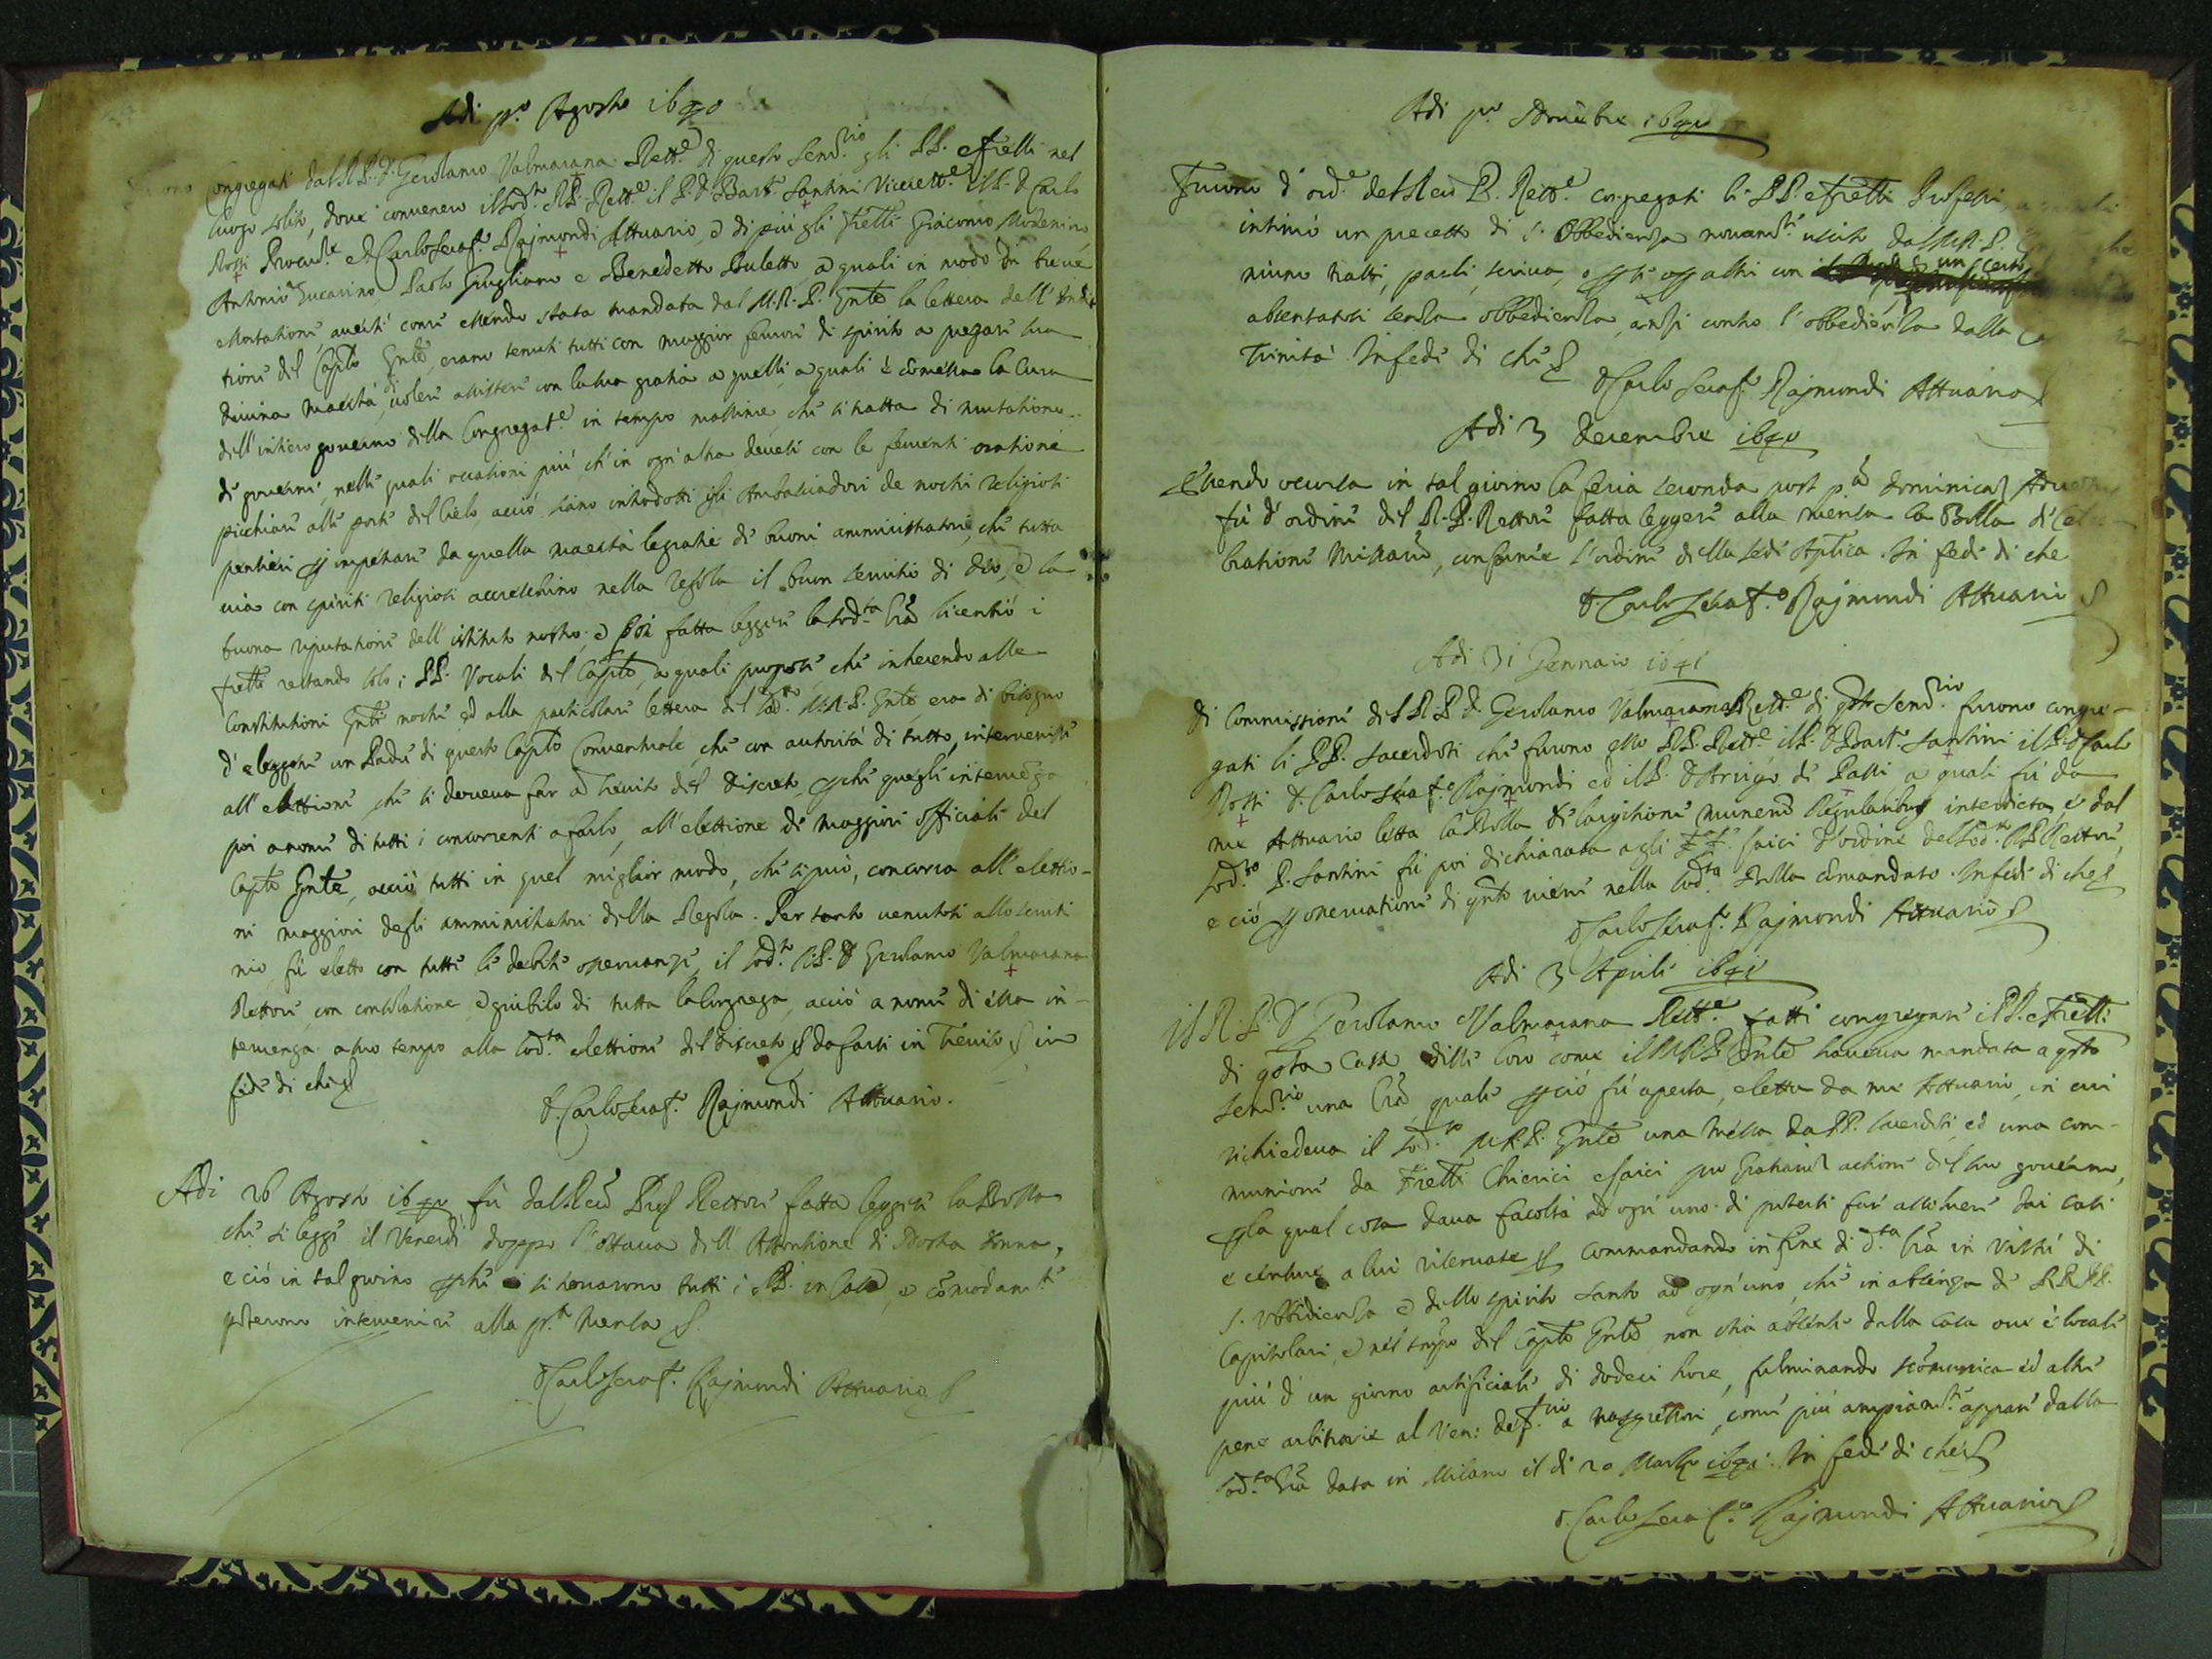 Adi p.º Agosto 1640
congregati dal R.P.D. Gerolamo Valmarana Rett.e di questo Sem.rio gli PP. e fr̃elli nel
luogo solito, doue conuenero il sod.to R.P. Rett.e il P.D. Bart.º Santini Vicerett.e il P.D. Carlo
Rossi Procur.re e D. Carlo Seraf.º Rajmondi Attuario, e di più gli fr̃elli Giacomo
Antonio Paolo Giugliano e Benedetto a quali in modo di breue
essortatione auertì come essendo stata mandata dal M.R.P. Gñle la lettera dell' Indi
tione del Capl̃o Gñle, erano tenuti tutti con maggior feruore di spirito a pregare sua
diuina maestà di uolere assistere con la sua gratia a quelli, a quali è cõmessa la Cura
dell' intiero gouerno della Congregat.e in tempo massime, che si tratta di mutatione
di gouerni, nelle quali occasioni più ch' in ogn' altra deuesi con le feruenti orationi
picchiare alle porte del Cielo, acciò siano introdotti gli Ambasciadori de nostri religiosi
pensieri ꝑ impetrare da quella maestà le gratie di buoni amministratori, che tutta
uia con spiriti religiosi accreschino nella regola il buon seruitio di Dio, e la
buona riputatione dell' istituto nostro; e poi fatta leggere la sod.ta lr̃a licentiò i
fr̃elli restando solo i PP. Vocali del Capl̃o, a quali propose che inherendo alle
Constitutioni Gñli nostre ed alla particolare lettera del sod.to M.R.P. Gñle era di bisogno
d' eleggere un Padre di questo Capl̃o Conuentuale, che con autorità di tutto interuenisse
all' elettione che si doueua far a Treuiso del Discreto, ꝑche quegli interuenga
poi a nome di tutti i concorrenti a farlo, all' elettione di maggiori officiali del
Capl̃o Gñle, acciò tutti in quel miglior modo, che si può, concorra all' elettio-
ni maggiori degli amministratori della Regola. Per tanto uenutosi allo scruti
nio, fù eletto con tutte le debite osseruanze, il sod.to R.P.D. Gerolamo Valmarana
Rettore, con consolatione, e giubilo di tutta la Congrega, acciò a nome di essa in-
teruenga a suo tempo alla sod.ta elettione del discreto da farsi in Treuiso in
fede di che
D. Carlo Seraf.º Rajmondi Attuario.
Adi 26 Agosto 1640 fù dal Rettore fatta leggere la Bolla
che si legge il Venerdì doppo l' ottaua dell' Assontione di Nostra Donna,
e ciò in tal giorno ꝑche si trouarono tutti i PP. in Casa, e cõmodam.te
poterono interuenire alla pr.a mensa
D. Carlo Seraf.º Rajmondi Attuario
Adi p.º Nouẽbre 1640
Furono d' ord.e del R. Rett.e congregati li PP. e fr̃elli Professi, a quali
intimò un precetto di S. Obbedienza nouam.te uscito dal M.R.P. che
niuno tratti, parli, scriua, ò altri con un certo
absentatosi senza obbedienza, anzi contro l' obbedienza dalla
Trinità. In fede di che
D. Carlo Seraf.º Rajmondi Attuario
Adi 3 Decembre 1640
Essendo occorsa in tal giorno la feria seconda post p.am dominicam Aduentus
fù d' ordine del R.P. Rettore fatta leggere alla mensa la Bolla de Cele-
bratione Missarũ, conforme l' ordine della Sede Apl̃ica. In fede di che
D. Carlo Seraf.º Rajmondi Attuario
Adi 31 Gennaio 1641
Di Commissione del R.P.D. Gerolamo Valmarana Rett.e di q̃sto Sem.rio furono congre-
gati li PP. sacerdoti che furono esso R.P. Rett.e il P.D. Bart.º Santini il P.D. Carlo
Rossi D. Carlo Seraf.º Rajmondi ed il P.D. Arrigo di Passi a quali fù da
me Attuario letta la Bolla de largitione munerũ Regularibus interdicta, e dal
sod.to P. Santini fù poi dichiarata agli FF. laici d' ordine del sod.to R.P. Rettore,
e ciò ꝑ osseruatione di q̃nto uiene nella sod.ta Bolla cõmandato. In fede di che
D. Carlo Seraf.º Rajmondi Attuario
Adi 3 Aprile 1641
Il R.P.D. Gerolamo Valmarana Rett.e fatti congregare i PP. e fr̃elli
di q̃sta Casa disse loro come il M.R.P. Gñle haueua mandata a q̃sto
Sem.rio una lr̃a quale ꝑciò fù aperta, e letta da me Attuario, in cui
richiedeua il sod.to M.R.P. Gñle una messa da PP. sacerdoti, ed una com-
munione da Fr̃elli Chierici e laici pro gratiarũ actione del suo gouerno,
ꝑ la qual cosa daua facoltà ad ogni uno di potersi far assoluere dai casi
e censure a lui riseruate commandando in fine di d.ta lr̃a in uirtù di
S. Vbbidienza e dello Spirito Santo ad ogn' uno, che in absenza de RR.PP.
Capitolari, e nel tempo del Capl̃o Gñle, non stia absente dalla casa oue è locale
più d' un giorno artificiale di dodeci hore, fulminando scõmunica ed altre
pene arbitrarie al Ven: Def.rio a trasgressori, come più ampiam.te appare dalla
sod.ta lr̃a data in Milano il di 20 Marzo 1641. In fede di che
D. Carlo Seraf.co Rajmondi Attuario